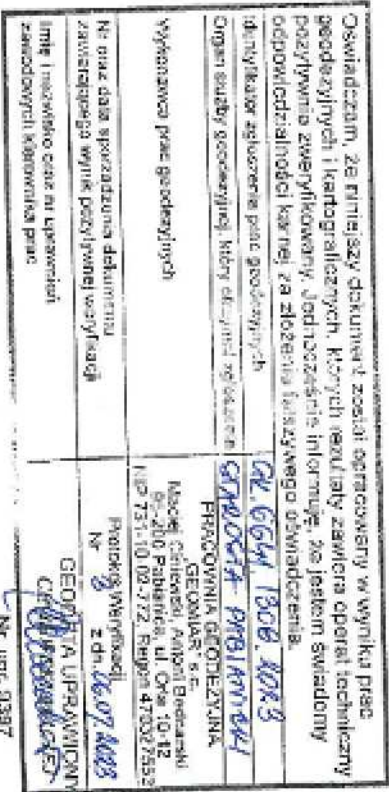 Oświadczam, że niniejszy dokument został opracowany w wyniku prac
geodezyjnych i kartograficznych, których rezultaty zawiera operat techniczny
pozytywnie zweryfikowany. Jednocześnie informuję, że jestem świadomy
odpowiedzialności karnej za złożenie fałszywego oświadczenia.
Identyfikator zgłoszenia prac geodezyjnych
Organ służby geodezyjnej, który otrzymał zgłoszenie
STAROSTA PABIANICKI
Wykonawca prac geodezyjnych
PRACOWNIA GEODEZYJNA
GEOMIAR s.c.
Maciej Antoni Bednarski
95-200 Pabianice, ul. Orla 10-12
NIP 731-10-02-772, Regon 470327553
Nr oraz data sporządzenia dokumentu
zawierającego wynik pozytywnej weryfikacji
Protokół Weryfikacji
Nr z dn.
Imię i nazwisko oraz nr uprawnień
zawodowych kierownika prac
GEODETA UPRAWNIONY
Nr upr. 9397